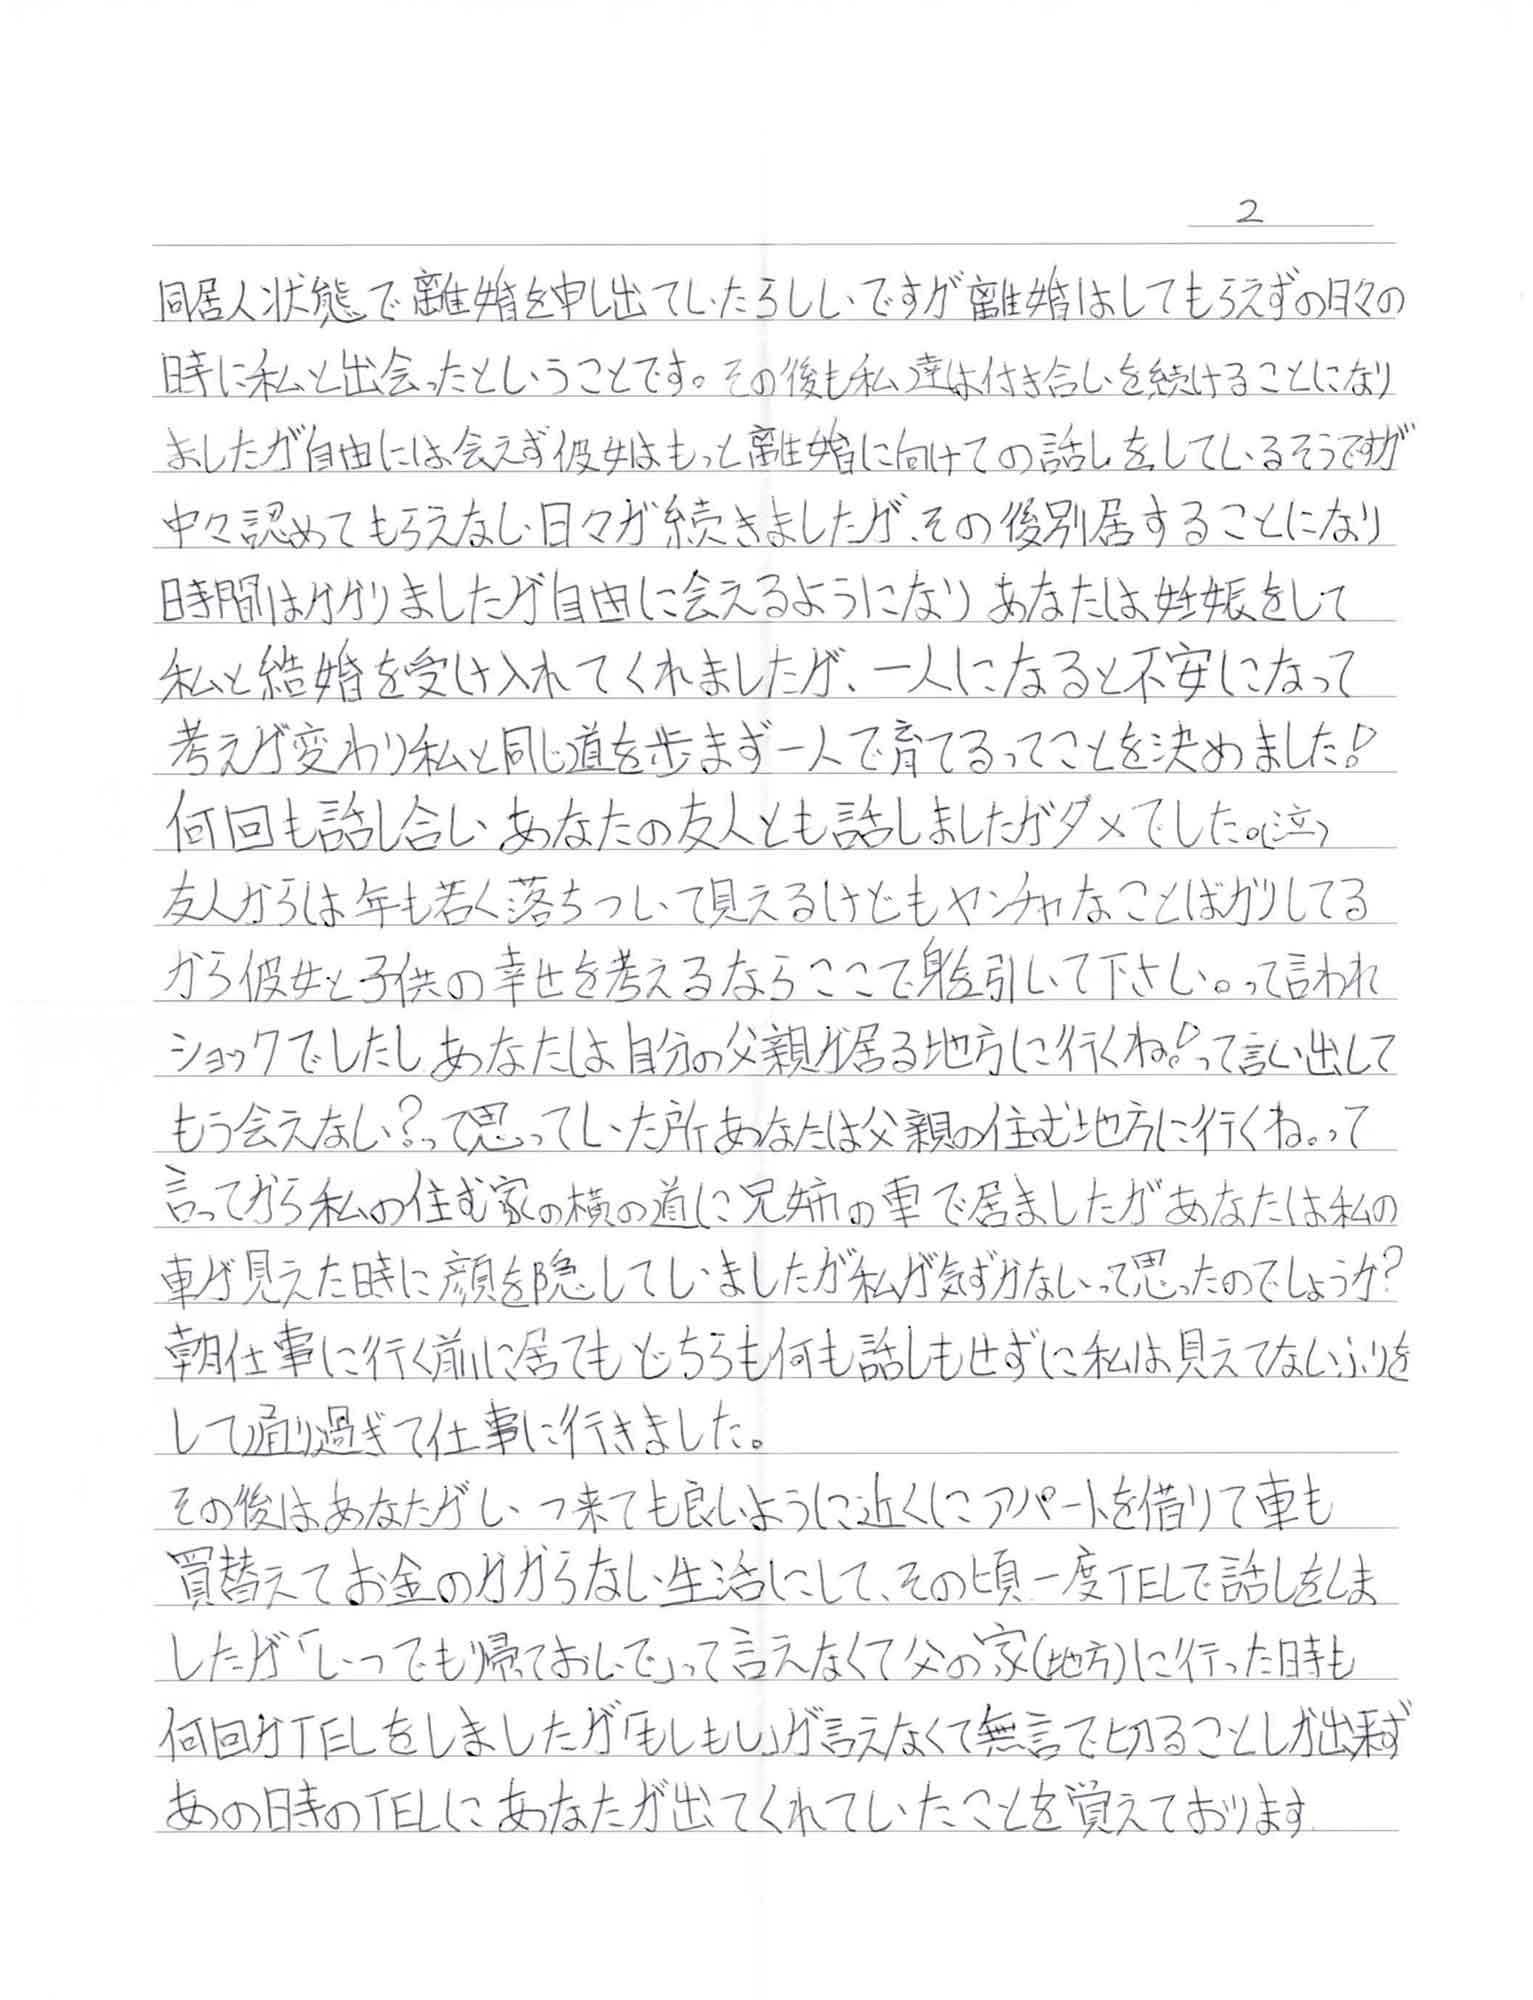 2
同居人状態で離婚を申し出ていたらしいですが離婚はしてもらえずの日々の
時に私と出会ったということです。その後も私達は付き合いを続けることになり
ましたが自由には会えず彼女はもっと離婚に向けての話しをしているそうですが
中々認めてもらえない日々が続きましたが、その後別居することになり
時間はかかりましたが自由に会えるようになりあなたは妊娠をして
私と結婚を受け入れてくれましたが、一人になると不安になって
考えが変わり私と同じ道を歩まず一人で育てるってことを決めました!
何回も話し合いあなたの友人とも話しましたがダメでした。(泣)
友人からは年も若く落ちついて見えるけどもヤンチャなことばかりしてる
から彼女と子供の幸せを考えるならここで身を引いて下さい。って言われ
ショックでしたしあなたは自分の父親が居る地方に行くね!って言い出して
もう会えない?って思っていた所あなたは父親の住む地方に行くね。って
言ってから私の住む家の横の道に兄姉の車で居ましたがあなたは私の
車が見えた時に顔を隠していましたが私が気ずかないって思ったのでしょうか?
朝仕事に行く前に居てもどちらも何も話しもせずに私は見えてないふりを
して通り過ぎて仕事に行きました。
その後はあなたがいつ来ても良いように近くにアパートを借りて車も
買替えてお金のかからない生活にして、その頃一度TELで話しをしま
したが「いつでも帰ておいで」って言えなくて父の家(地方)に行った時も
何回かTELをしましたが「もしもし」が言えなくて無言で切ることしか出来ず
あの日時のTELにあなたが出てくれていたことを覚えております